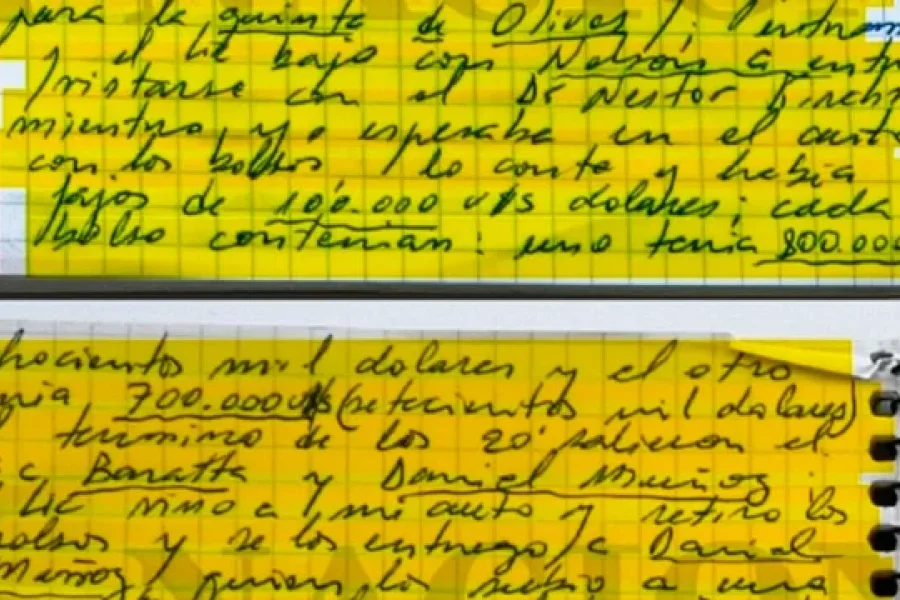 para la quinta de Olivos
y el Lic bajo con Nelson G
con el Dr Nestor
mientras yo esperaba en el
con los bolsos lo conte y habia
fajos de 100.000 u$s dolares; cada
bolso contenian: uno tenia 800.000
mil dolares y el otro
700.000 u$s (setecientos mil dolares)
termino de los 20' salieron el
Baratta y Daniel Muñoz;
Lic vino a mi auto y retiro los
bolsos y se los entrego a Daniel
Muñoz, quien lo subio a una